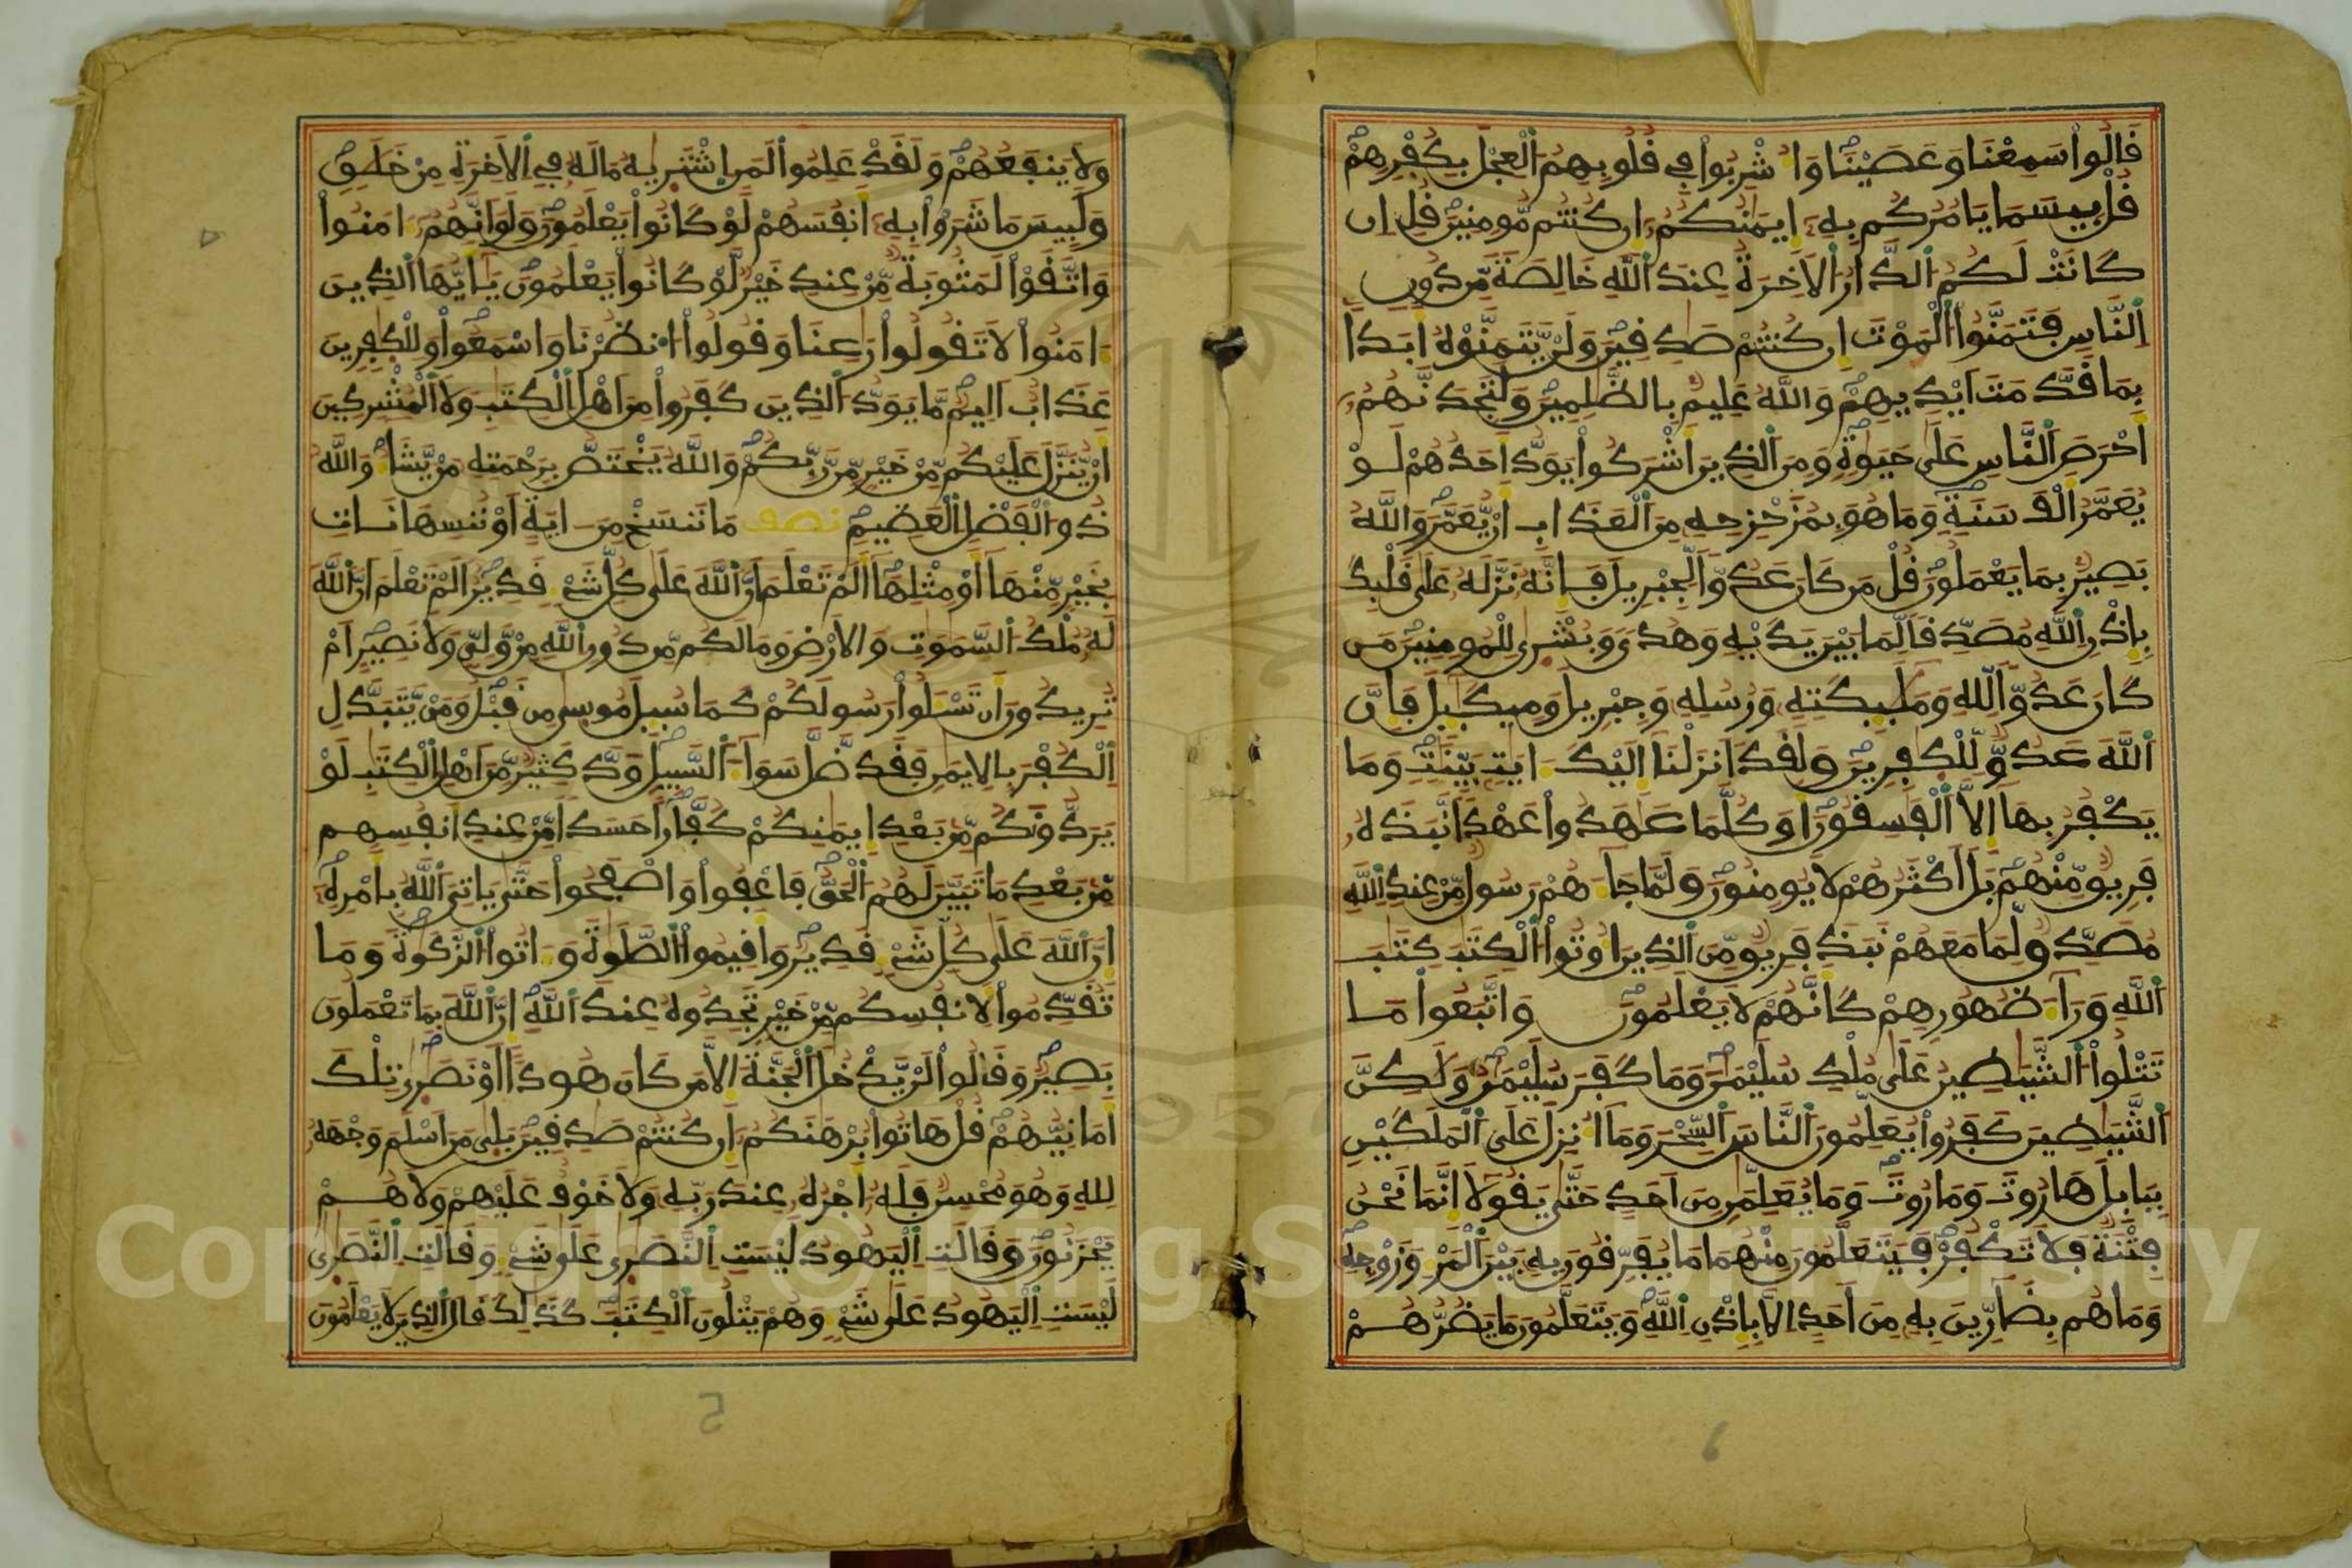 قَالُواْ سَمِعْنَا وَعَصَيْنَا وَأُشْرِبُواْ فِي قُلُوبِهِمُ الْعِجْلَ بِكُفْرِهِمْ
قُلْ بِيسَمَا يَامُرُكُم بِهِ إِيمَٰنُكُمُ إِن كُنتُم مُّومِنِينَ قُلِ ان
كَانَتْ لَكُمُ الدَّارُ الَاخِرَةُ عِندَ اللَّهِ خَالِصَةً مِّن دُونِ
النَّاسِ فَتَمَنَّوُاْ الْمَوْتَ إِن كُنتُمْ صَٰدِقِينَ وَلَنْ يَّتَمَنَّوْهُ أَبَداً
بِمَا قَدَّمَتَ ايْدِيهِمْ وَاللَّهُ عَلِيمٌ بِالظَّٰلِمِينَ وَلَتَجِدَنَّهُمُ
أَحْرَصَ النَّاسِ عَلَىٰ حَيَوٰةٍ وَمِنَ الذِينَ أَشْرَكُواْ يَوَدُّ أَحَدُهُمْ لَوْ
يُعَمَّرُ أَلْفَ سَنَةٍ وَمَا هُوَ بِمُزَحْزِحِهِ مِنَ الْعَذَابِ أَنْ يُّعَمَّرَ وَاللَّهُ
بَصِيرٌ بِمَا يَعْمَلُونَ قُلْ مَن كَانَ عَدُوّاً لِّجِبْرِيلَ فَإِنَّهُ نَزَّلَهُ عَلَىٰ قَلْبِكَ
بِإِذْنِ اللَّهِ مُصَدِّقاً لِّمَا بَيْنَ يَدَيْهِ وَهُدىً وَبُشْرَىٰ لِلْمُومِنِينَ مَن
كَانَ عَدُوّاً لِّلهِ وَمَلَٰٓئِكَتِهِ وَرُسُلِهِ وَجِبْرِيلَ وَمِيكَٰٓئِلَ فَإِنَّ
اللَّهَ عَدُوٌّ لِّلْكَٰفِرِينَ وَلَقَدَ انزَلْنَا إِلَيْكَ ءَايَٰتٍ بَيِّنَٰتٍ وَمَا
يَكْفُرُ بِهَا إِلاَّ الْفَٰسِقُونَ أَوَكُلَّمَا عَٰهَدُواْ عَهْداً نَّبَذَهُ
فَرِيقٌ مِّنْهُم بَلَ اكْثَرُهُمْ لاَ يُومِنُونَ وَلَمَّا جَاءَهُمْ رَسُولٌ مِّنْ عِندِ اللَّهِ
مُصَدِّقٌ لِّمَا مَعَهُمْ نَبَذَ فَرِيقٌ مِّنَ الذِينَ أُوتُواْ الْكِتَٰبَ كِتَٰبَ
اللَّهِ وَرَاءَ ظُهُورِهِمْ كَأَنَّهُمْ لاَ يَعْلَمُونَ وَاتَّبَعُواْ مَا
تَتْلُواْ الشَّيَٰطِينُ عَلَىٰ مُلْكِ سُلَيْمَٰنَ وَمَا كَفَرَ سُلَيْمَٰنُ وَلَٰكِنَّ
الشَّيَٰطِينَ كَفَرُواْ يُعَلِّمُونَ النَّاسَ السِّحْرَ وَمَا أُنزِلَ عَلَى الْمَلَكَيْنِ
بِبَابِلَ هَارُوتَ وَمَارُوتَ وَمَا يُعَلِّمَٰنِ مِنَ احَدٍ حَتَّىٰ يَقُولاَ إِنَّمَا نَحْنُ
فِتْنَةٌ فَلاَ تَكْفُرْ فَيَتَعَلَّمُونَ مِنْهُمَا مَا يُفَرِّقُونَ بِهِ بَيْنَ الْمَرْءِ وَزَوْجِهِ
وَمَا هُم بِضَارِّينَ بِهِ مِنَ احَدٍ الاَّ بِإِذْنِ اللَّهِ وَيَتَعَلَّمُونَ مَا يَضُرُّهُمْ
وَلاَ يَنفَعُهُمْ وَلَقَدْ عَلِمُواْ لَمَنِ اشْتَرَىٰهُ مَا لَهُ فِي الَاخِرَةِ مِنْ خَلَٰقٍ
وَلَبِيسَ مَا شَرَوْاْ بِهِ أَنفُسَهُمْ لَوْ كَانُواْ يَعْلَمُونَ وَلَوَ انَّهُمُ ءَامَنُواْ
وَاتَّقَوْاْ لَمَثُوبَةٌ مِّنْ عِندِ خَيْرٌ لَّوْ كَانُواْ يَعْلَمُونَ يَٰأَيُّهَا الذِينَ
ءَامَنُواْ لاَ تَقُولُواْ رَٰعِنَا وَقُولُواْ انظُرْنَا وَاسْمَعُواْ وَلِلْكَٰفِرِينَ
عَذَابٌ اَلِيمٌ مَّا يَوَدُّ الذِينَ كَفَرُواْ مِنَ اهْلِ الْكِتَٰبِ وَلاَ الْمُشْرِكِينَ
أَنْ يُّنَزَّلَ عَلَيْكُم مِّنْ خَيْرٍ مِّن رَّبِّكُمْ وَاللَّهُ يَخْتَصُّ بِرَحْمَتِهِ مَنْ يَّشَاءُ وَاللَّهُ
ذُو الْفَضْلِ الْعَظِيمِ نصف مَا نَنسَخْ مِنَ ايَةٍ اَوْ نُنسِهَا نَاتِ
بِخَيْرٍ مِّنْهَا أَوْ مِثْلِهَا أَلَمْ تَعْلَمَ انَّ اللَّهَ عَلَىٰ كُلِّ شَيْءٍ قَدِيرٌ اَلَمْ تَعْلَمَ انَّ اللَّهَ
لَهُ مُلْكُ السَّمَٰوَٰتِ وَالَارْضِ وَمَا لَكُم مِّن دُونِ اللَّهِ مِنْ وَّلِيٍّ وَلاَ نَصِيرٍ اَمْ
تُرِيدُونَ أَن تَسْـَٔلُواْ رَسُولَكُمْ كَمَا سُئِلَ مُوسَىٰ مِن قَبْلُ وَمَنْ يَّتَبَدَّلِ
الْكُفْرَ بِالاِيمَٰنِ فَقَد ضَّلَّ سَوَاءَ السَّبِيلِ وَدَّ كَثِيرٌ مِّنَ اهْلِ الْكِتَٰبِ لَوْ
يَرُدُّونَكُم مِّن بَعْدِ إِيمَٰنِكُمْ كُفَّاراً حَسَداً مِّنْ عِندِ أَنفُسِهِم
مِّن بَعْدِ مَا تَبَيَّنَ لَهُمُ الْحَقُّ فَاعْفُواْ وَاصْفَحُواْ حَتَّىٰ يَاتِيَ اللَّهُ بِأَمْرِهِ
إِنَّ اللَّهَ عَلَىٰ كُلِّ شَيْءٍ قَدِيرٌ وَأَقِيمُواْ الصَّلَوٰةَ وَءَاتُواْ الزَّكَوٰةَ وَمَا
تُقَدِّمُواْ لِأَنفُسِكُم مِّنْ خَيْرٍ تَجِدُوهُ عِندَ اللَّهِ إِنَّ اللَّهَ بِمَا تَعْمَلُونَ
بَصِيرٌ وَقَالُواْ لَنْ يَّدْخُلَ الْجَنَّةَ إِلاَّ مَن كَانَ هُوداً اَوْ نَصَٰرَىٰ تِلْكَ
أَمَانِيُّهُمْ قُلْ هَاتُواْ بُرْهَٰنَكُمُ إِن كُنتُمْ صَٰدِقِينَ بَلَىٰ مَنَ اسْلَمَ وَجْهَهُ
لِلهِ وَهُوَ مُحْسِنٌ فَلَهُ أَجْرُهُ عِندَ رَبِّهِ وَلاَ خَوْفٌ عَلَيْهِمْ وَلاَ هُمْ
يَحْزَنُونَ وَقَالَتِ الْيَهُودُ لَيْسَتِ النَّصَٰرَىٰ عَلَىٰ شَيْءٍ وَقَالَتِ النَّصَٰرَىٰ
لَيْسَتِ الْيَهُودُ عَلَىٰ شَيْءٍ وَهُمْ يَتْلُونَ الْكِتَٰبَ كَذَٰلِكَ قَالَ الذِينَ لاَ يَعْلَمُونَ
Copyright © King Saud University
1957